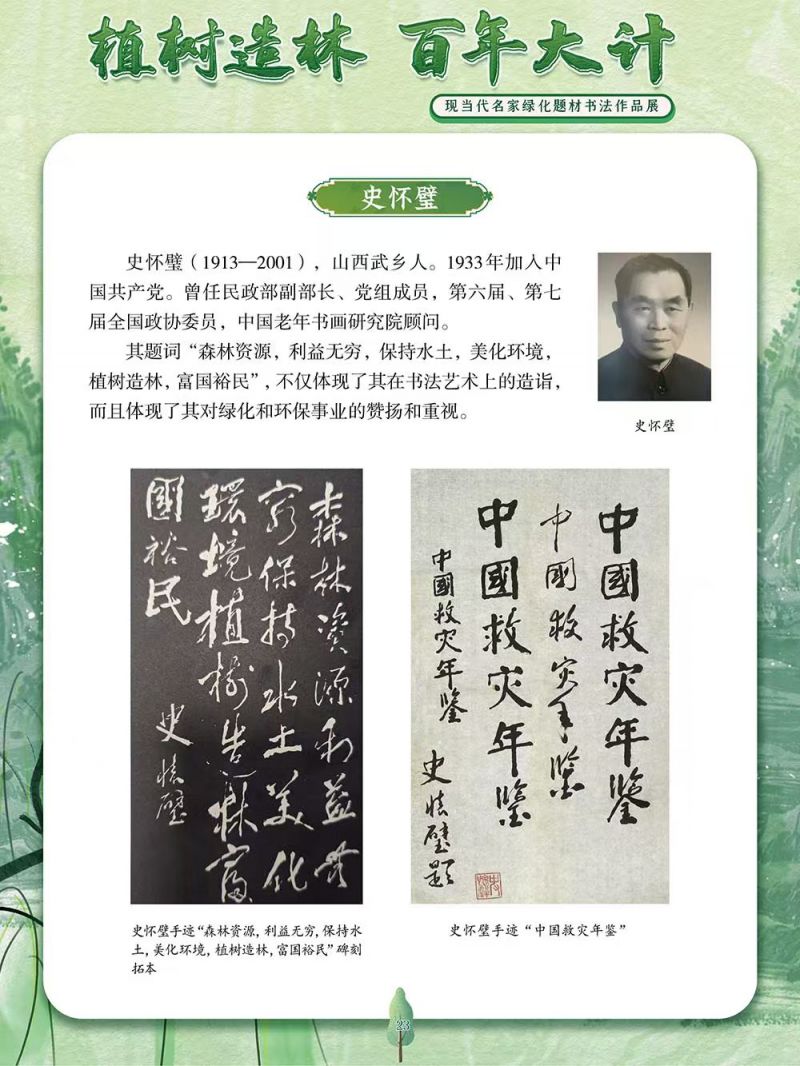 植树造林 百年大计
现当代名家绿化题材书法作品展
史怀璧
史怀璧（1913—2001），山西武乡人。1933年加入中
国共产党。曾任民政部副部长、党组成员，第六届、第七
届全国政协委员，中国老年书画研究院顾问。
其题词“森林资源，利益无穷，保持水土，美化环境，
植树造林，富国裕民”，不仅体现了其在书法艺术上的造诣，
而且体现了其对绿化和环保事业的赞扬和重视。
史怀璧
森林资源利益无
穷保持水土美化
環境植樹造林富
國裕民
史怀璧
中國救灾年鉴
中國救灾年鉴
中國救灾年鉴
中國救灾年鉴
史怀璧题
史怀璧手迹“森林资源，利益无穷，保持水
土，美化环境，植树造林，富国裕民”碑刻
拓本
史怀璧手迹“中国救灾年鉴”
23